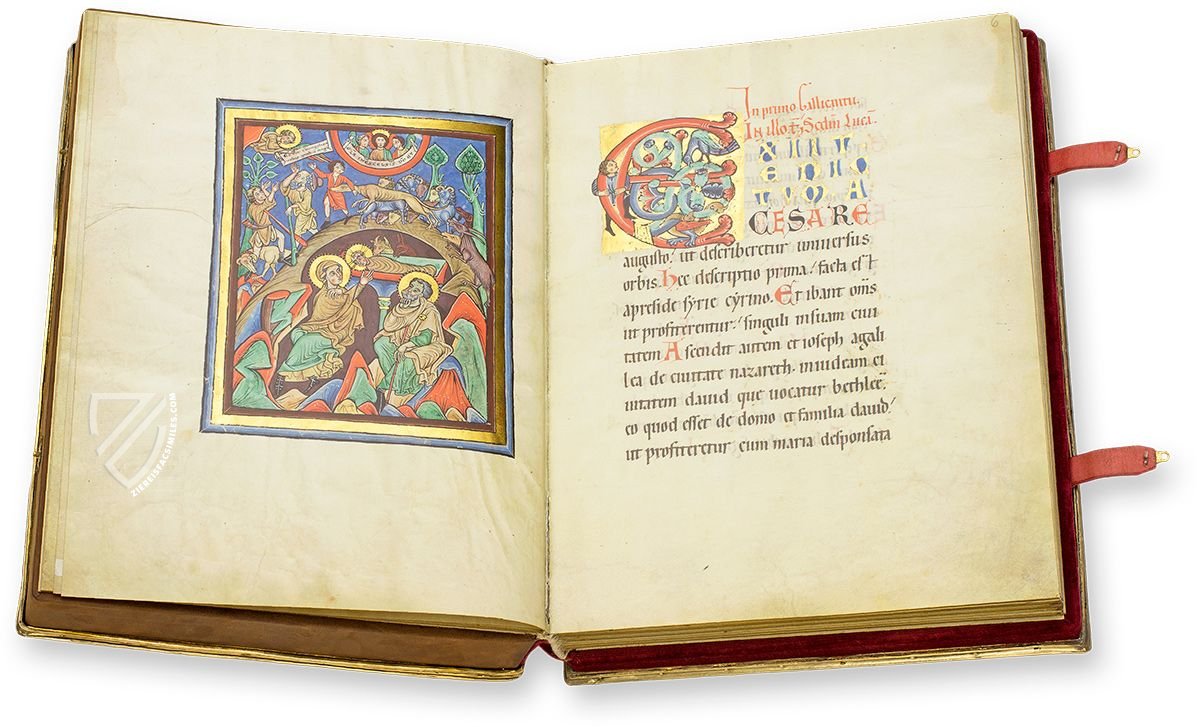 6
In primo Gallicantu.
In illo t̄. Sedm̄ Lucā.
E
XIIT
EDIC
TUM A
CESARE
augusto. ut describeretur universus
orbis. Hec descriptio prima. facta est
apreside syrie cyrino. Et ibant om̄s
ut profiterentur. singuli insuam civi
tatem Ascendit autem et ioseph agali
lea de civitate nazareth. iniudeam ci
vitatem david que vocatur bethlee.
eo quod esset de domo et familia david.
ut profiteretur cum maria desponsata
ZIEREISFACSIMILES.COM